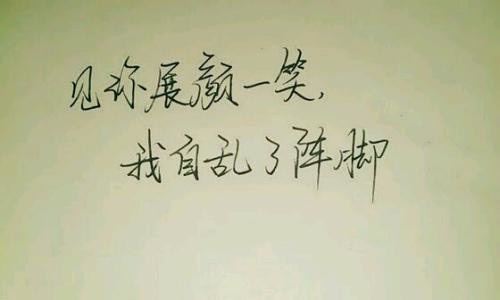 见你展颜一笑，
我自乱了阵脚